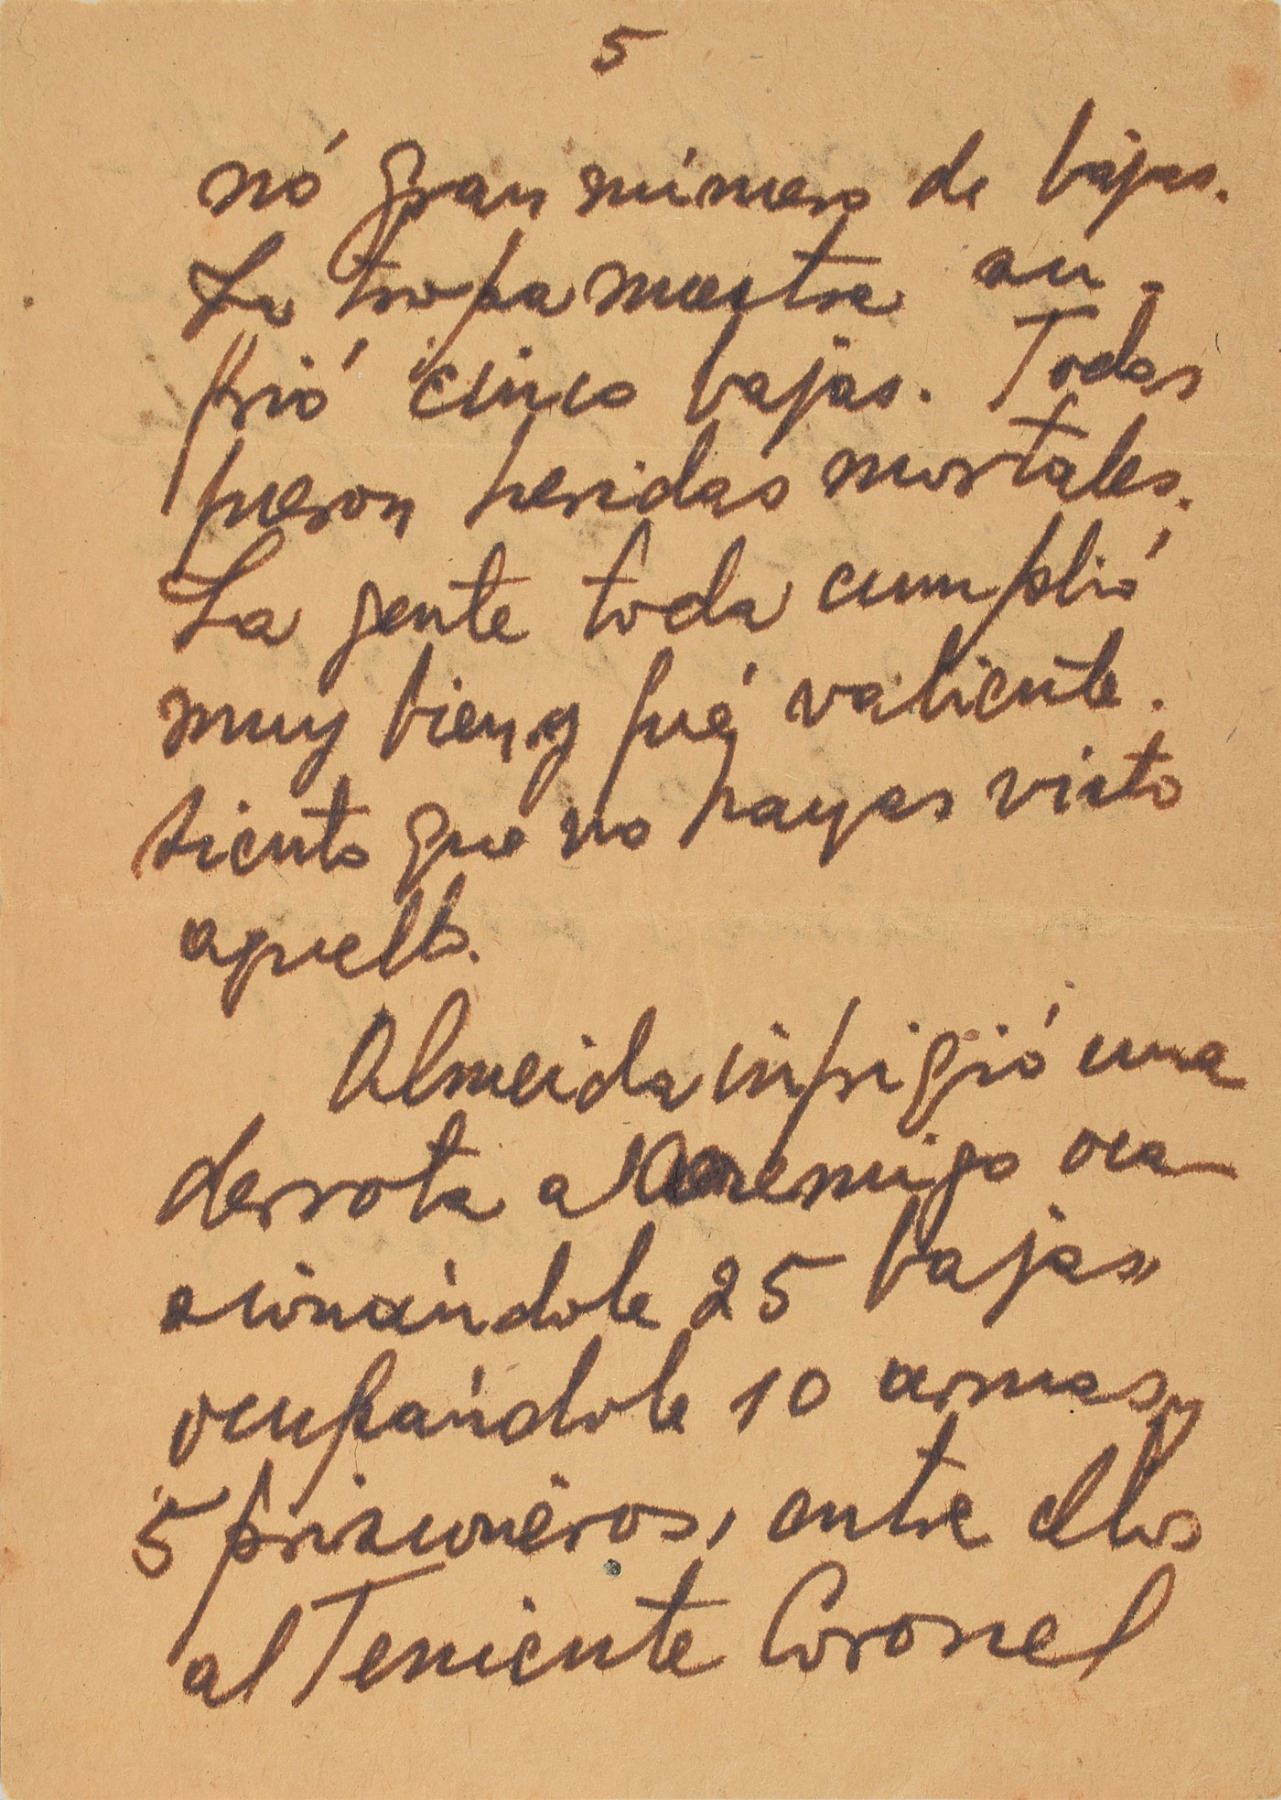 5
nó gran número de bajas.
La tropa nuestra su-
frió cinco bajas. Todas
fueron heridas mortales.
La gente toda cumplió
muy bien y fué valiente.
siento que no hayas visto
aquello.
Almeida infrigió una
derrota al enemigo oca-
sionándole 25 bajas
ocupándole 10 armas y
5 prisioneros, entre ellos
al Teniente Coronel